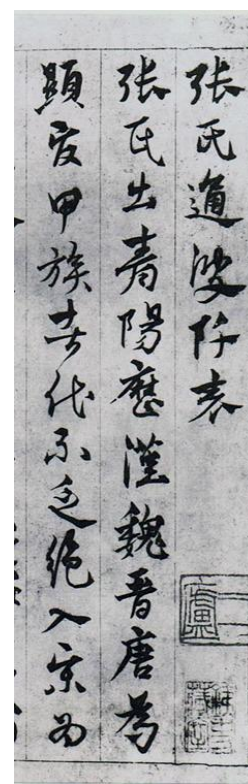 張氏通波阡表
張氏出青陽歷漢魏晉唐為
顯宦甲族者代不乏絕入宋